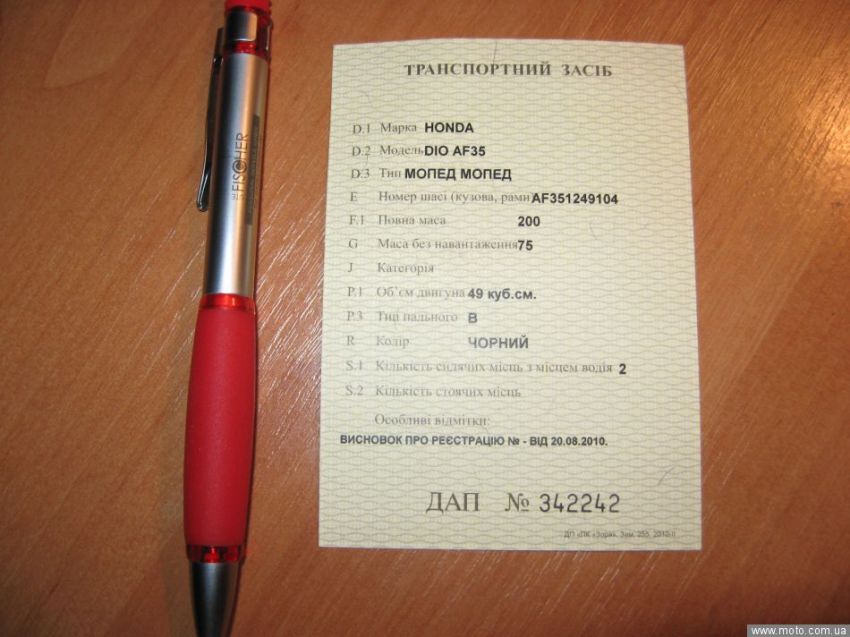 FISCHER
ТРАНСПОРТНИЙ ЗАСІБ
D.1 Марка HONDA
D.2 Модель DIO AF35
D.3 Тип МОПЕД МОПЕД
E Номер шасі (кузова, рами) AF351249104
F.1 Повна маса 200
G Маса без навантаження 75
J Категорія
P.1 Об'єм двигуна 49 куб.см.
P.3 Тип пального B
R Колір ЧОРНИЙ
S.1 Кількість сидячих місць з місцем водія 2
S.2 Кількість стоячих місць
Особливі відмітки:
ВИСНОВОК ПРО РЕЄСТРАЦІЮ № - ВІД 20.08.2010.
ДАП № 342242
ДП «ПК «Зоря». Зам.
www.moto.com.ua